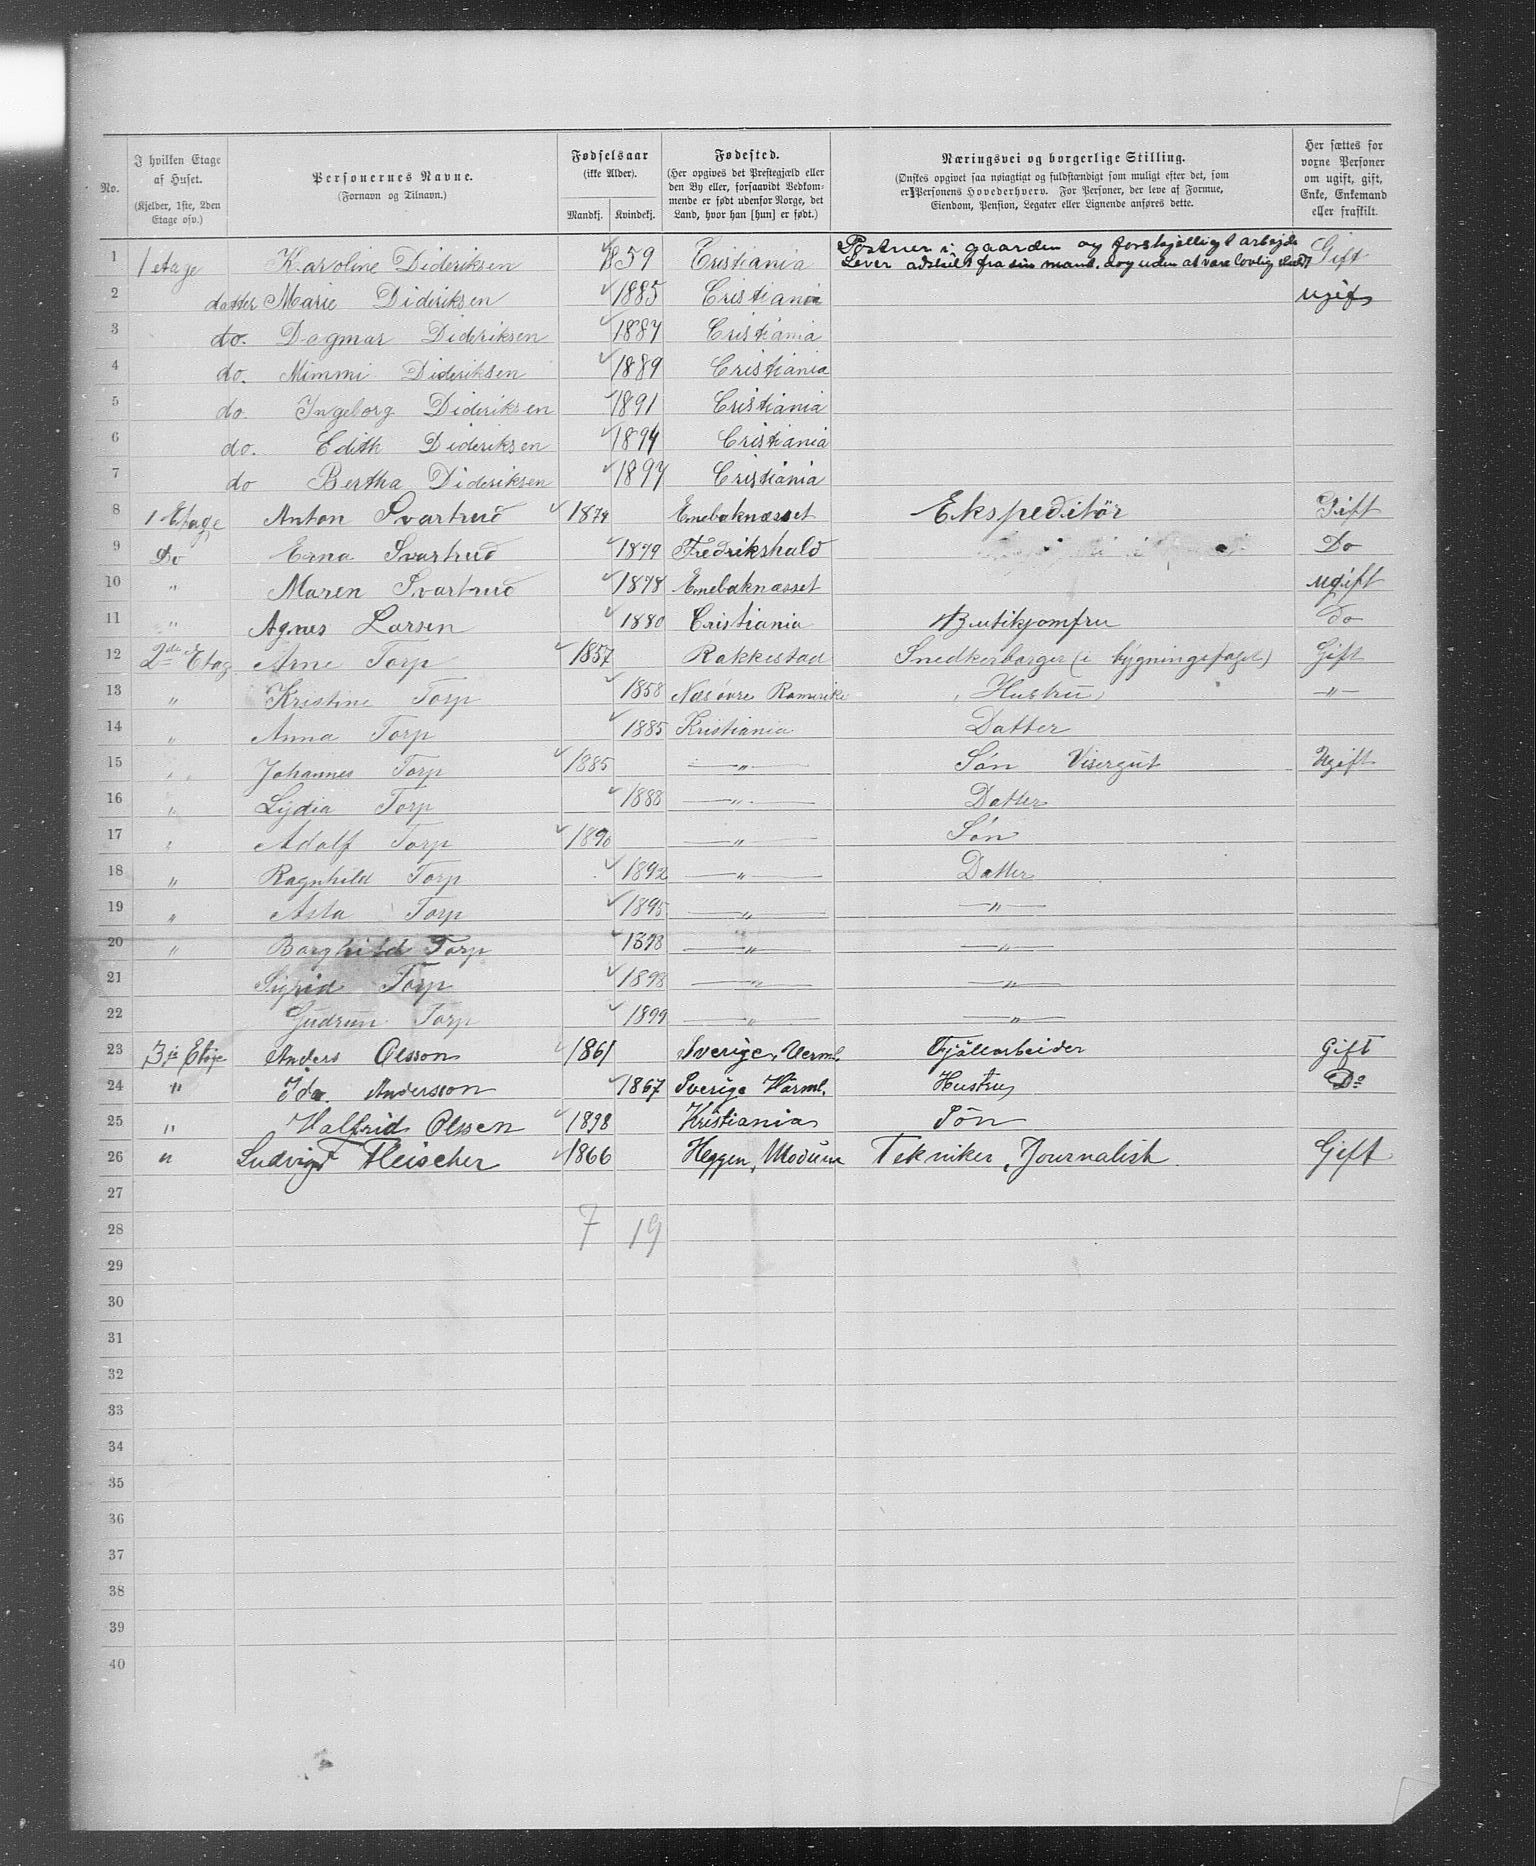 No.
I hvilken Etage af Huset.
(Kjelder, 1ste, 2den Etage osv.)
Personernes Navne.
(Fornavn og Tilnavn.)
Fødselsaar
(ikke Alder).
Mandkj. Kvindekj.
Fødested.
(Her opgives det Prestegjæld eller den By eller, forsaavidt Vedkommende er født udenfor Norge, det Land, hvor han [hun] er født.)
Næringsvei og borgerlige Stilling.
(Ønskes opgivet saa nøiagtigt og fuldstændigt som muligt efter det, som er Personens Hovederhverv. For Personer, der leve af Formue, Eiendom, Pension, Legater eller Lignende anføres dette.
Her sættes for voxne Personer om ugift, gift, Enke, Enkemand eller fraskilt.
1 1 etage Karoline Dideriksen 1859 Cristiania Portner i gaarden og forskjelligt arbejde Gift
Lever adskilt fra sin mand. dog uden at være lovlig
2 datter Marie Dideriksen 1885 Cristiania ugift
3 do. Dagmar Dideriksen 1887 Cristiania
4 do. Mimmi Dideriksen 1889 Cristiania
5 do. Ingeborg Dideriksen 1891 Cristiania
6 do. Edith Dideriksen 1894 Cristiania
7 do Bertha Dideriksen 1897 Cristiania
8 1 Etage Anton Svartrud 1874 Enebaknæsset Ekspeditör Gift
9 Do Erna Svartrud 1879 Fredrikshald Do
10 " Maren Svartrud 1878 Enebaknæsset ugift
11 " Agnes Larsen 1880 Cristiania Butikjomfru do
12 2den Etag Arne Torp 1857 Rakkestad Snedkerborger (i bygningsfaget) Gift
13 " Kristine Torp 1858 Næs óvre Romerike Hustru —"—
14 " Anna Torp 1885 Kristiania Datter
15 " Johannes Torp 1885 —"— Són Visergut Ugift
16 " Lydia Torp 1888 —"— Datter
17 " Adolf Torp 1890 —"— Són
18 " Ragnhild Torp 1892 —"— Datter
19 " Asta Torp 1895 —"— —"—
20 " Borghild Torp 1898 —"— —"—
21 Sigrid Torp 1898 —"— —"—
22 Gudrun Torp 1899 —"— —"—
23 3je Etage Anders Olsson 1861 Sverige, Verml. Fjällarbeider Gift
24 " Ida Andersson 1867 Sverige Värml. Hustru Do
25 " Halfrid Olssen 1898 Kristiania Sön
26 " Ludvig Fleischer 1866 Heggen, Modum Tekniker, Journalist Gift
27
28 7 19
29
30
31
32
33
34
35
36
37
38
39
40